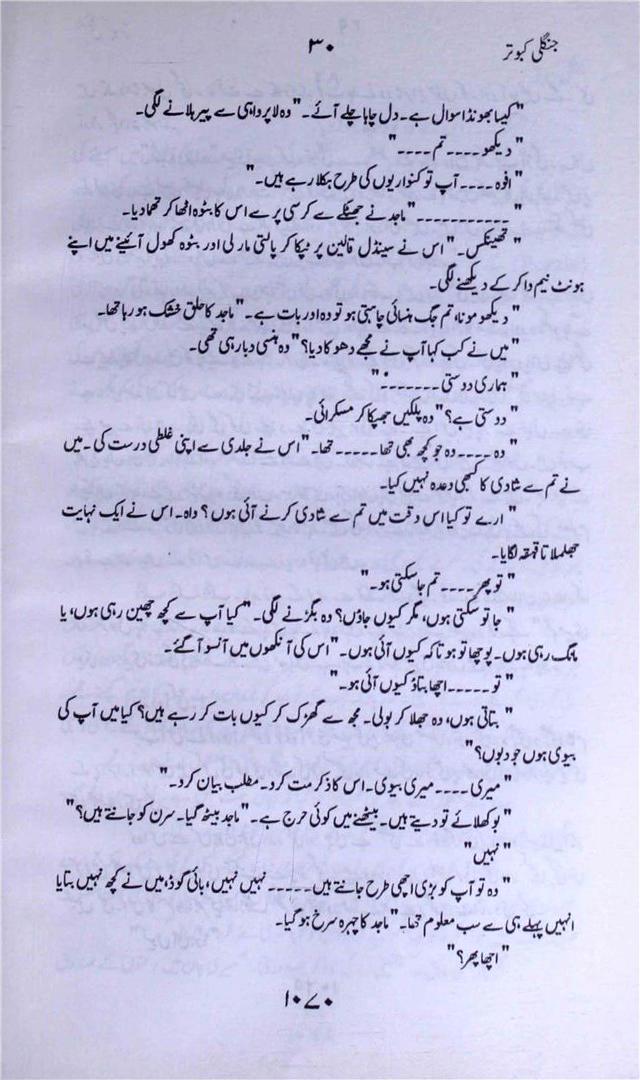 جنگلی کبوتر
۳۰
" کیسا بھونڈا سوال ہے۔ دل چاہا چلے آئے۔ " وہ لاپرواہی سے پیر ہلانے لگی۔
" دیکھو۔۔۔۔ تم ۔۔۔۔ "
" افوہ ۔۔۔۔ آپ تو کنواریوں کی طرح ہکلا رہے ہیں۔ "
" ۔۔۔۔۔۔۔۔۔۔۔ " ماجد نے جھٹکے سے کرسی پر سے اس کا بٹوہ اٹھا کر تھما دیا۔
" تھینکس۔ " اس نے سینڈل قالین پر ٹپکا کر پالتی مار لی اور بٹوہ کھول آئینے میں اپنے
ہونٹ نیم وا کر کے دیکھنے لگی۔
" دیکھو مونا، تم جگ ہنسائی چاہتی ہو تو وہ اور بات ہے۔ " ماجد کا حلق خشک ہو رہا تھا۔
" میں نے کب کہا آپ نے مجھے دھوکا دیا؟ " وہ ہنسی دبا رہی تھی۔
" ہماری دوستی ۔۔۔۔۔۔ "
" دوستی ہے؟ " وہ پلکیں جھپکا کر مسکرائی۔
" وہ ۔۔۔۔ وہ جو کچھ بھی تھا ۔۔۔۔۔ تھا۔ " اس نے جلدی سے اپنی غلطی درست کی۔ میں
نے تم سے شادی کا کبھی وعدہ نہیں کیا۔
" ارے تو کیا اس وقت میں تم سے شادی کرنے آئی ہوں ؟ واہ۔ اس نے ایک نہایت
جھلملاتا قہقہہ لگایا۔
" تو پھر ۔۔۔۔ تم جا سکتی ہو۔ "
" جا تو سکتی ہوں، مگر کیوں جاؤں؟ وہ بگڑنے لگی۔ " کیا آپ سے کچھ چھین رہی ہوں، یا
مانگ رہی ہوں۔ پوچھا تو ہوتا کہ کیوں آئی ہوں۔ " اس کی آنکھوں میں آنسو آ گئے۔
" تو ۔۔۔۔۔ اچھا بتاؤ کیوں آئی ہو۔ "
" بتاتی ہوں، وہ جھلا کر بولی۔ مجھ سے گھڑک کر کیوں بات کر رہے ہیں؟ کیا میں آپ کی
بیوی ہوں جو دبوں؟ "
" میری ۔۔۔۔ میری بیوی۔ اس کا ذکر مت کرو۔ مطلب بیان کرو۔ "
" بوکھلائے تو دیتے ہیں۔ بیٹھنے میں کوئی حرج ہے۔ " ماجد بیٹھ گیا۔ سرن کو جانتے ہیں؟ "
" نہیں "
" وہ تو آپ کو بڑی اچھی طرح جانتے ہیں ۔۔۔۔۔ نہیں نہیں، بائی گوڈ، میں نے کچھ نہیں بتایا
انہیں پہلے ہی سے سب معلوم تھا۔ " ماجد کا چہرہ سرخ ہو گیا۔
" اچھا پھر؟ "
۱۰۷۰